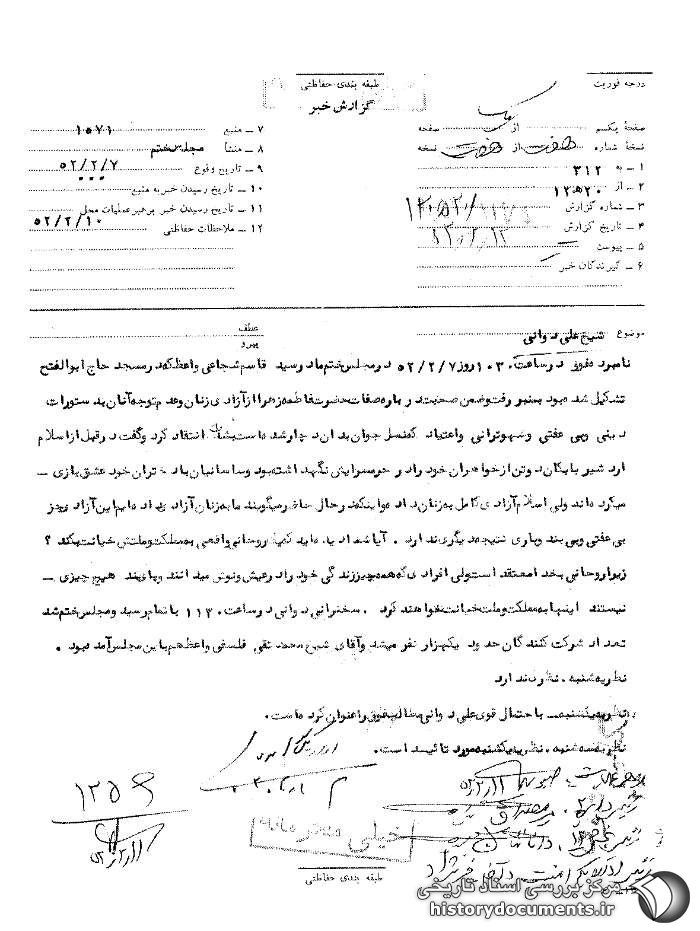 درجه فوریت
طبقه بندی حفاظتی
گزارش خبر
صفحهٔ یکم از یک صفحه
نسخهٔ شماره هفت از هفت نسخه
۱ – به ۳۱۲
۲ – از ۱۲ ه‍ ۲۰
۳ – شماره گزارش
۴ – تاریخ گزارش
۵ – پیوست
۶ – گیرندگان خبر
۷ – منبع ۱۵۷۱
۸ – منشأ مجلس ختم
۹ – تاریخ وقوع ۵۲/۲/۷
۱۰ – تاریخ رسیدن خبر به منبع
۱۱ – تاریخ رسیدن خبر برهبر عملیات محل ۵۲/۲/۱۰
۱۲ – ملاحظات حفاظتی
موضوع شیخ علی دوانی
عطف
پیرو
نامبرد فوق در ساعت ۱۰۳۰ روز ۵۲/۲/۷ در مجلس ختم مادر سید قاسم شجاعی واعظ که در مسجد حاج ابوالفتح
تشکیل شد ه بود بمنبر رفت وضمن صحبت در باره صفات حضرت فاطمه زهرا از آزادی زنان وعدم توجه آنان بد ستورات
دینی وبی عفتی وشهوترانی واعتیاد که نسل جوان بدان دچار شد ه است بشدت انتقاد کرد وگفت در قبل از اسلام
ارد شیر بابکان دوتن از خواهران خود را در حرمسرایش نگهد اشته بود وساسانیان با د ختران خود عشق بازی –
میکرد ه اند ولی اسلام آزادی کامل به زنان داد ه واینکه در حال حاضر میگویند ما به زنان آزادی داد ه ایم این آزادی جز
بی عفتی وبی بند وباری نتیجه دیگری ندارد . آیا شما دید ه اید که یک روحانی واقعی به مملکت وملتش خیانت بکند ؟
زیرا روحانی بخدا معتقد است ولی افرادی که همه چیز زندگی خود را در عیش ونوش مید انند وپابند هیچ چیزی –
نیستند اینها به مملکت وملت خیانت خواهند کرد . سخنرانی دوانی در ساعت ۱۱۳۰ باتمام رسید ومجلس ختم شد
تعداد شرکت کنندگان حدود یکهزار نفر میشد وآقای شیخ محمد تقی فلسفی واعظ هم باین مجلس آمد ه بود .
نظریه شنبه . نظر ندارد
نظریه یکشنبه . با احتمال قوی علی دوانی مطالب فوق را عنوان کرد ه است .
نظریه سه شنبه . نظریه یکشنبه مورد تائید است .
خیلی محرمانه
طبقه بندی حفاظتی
مرکز بررسی اسناد تاریخی
historydocuments.ir